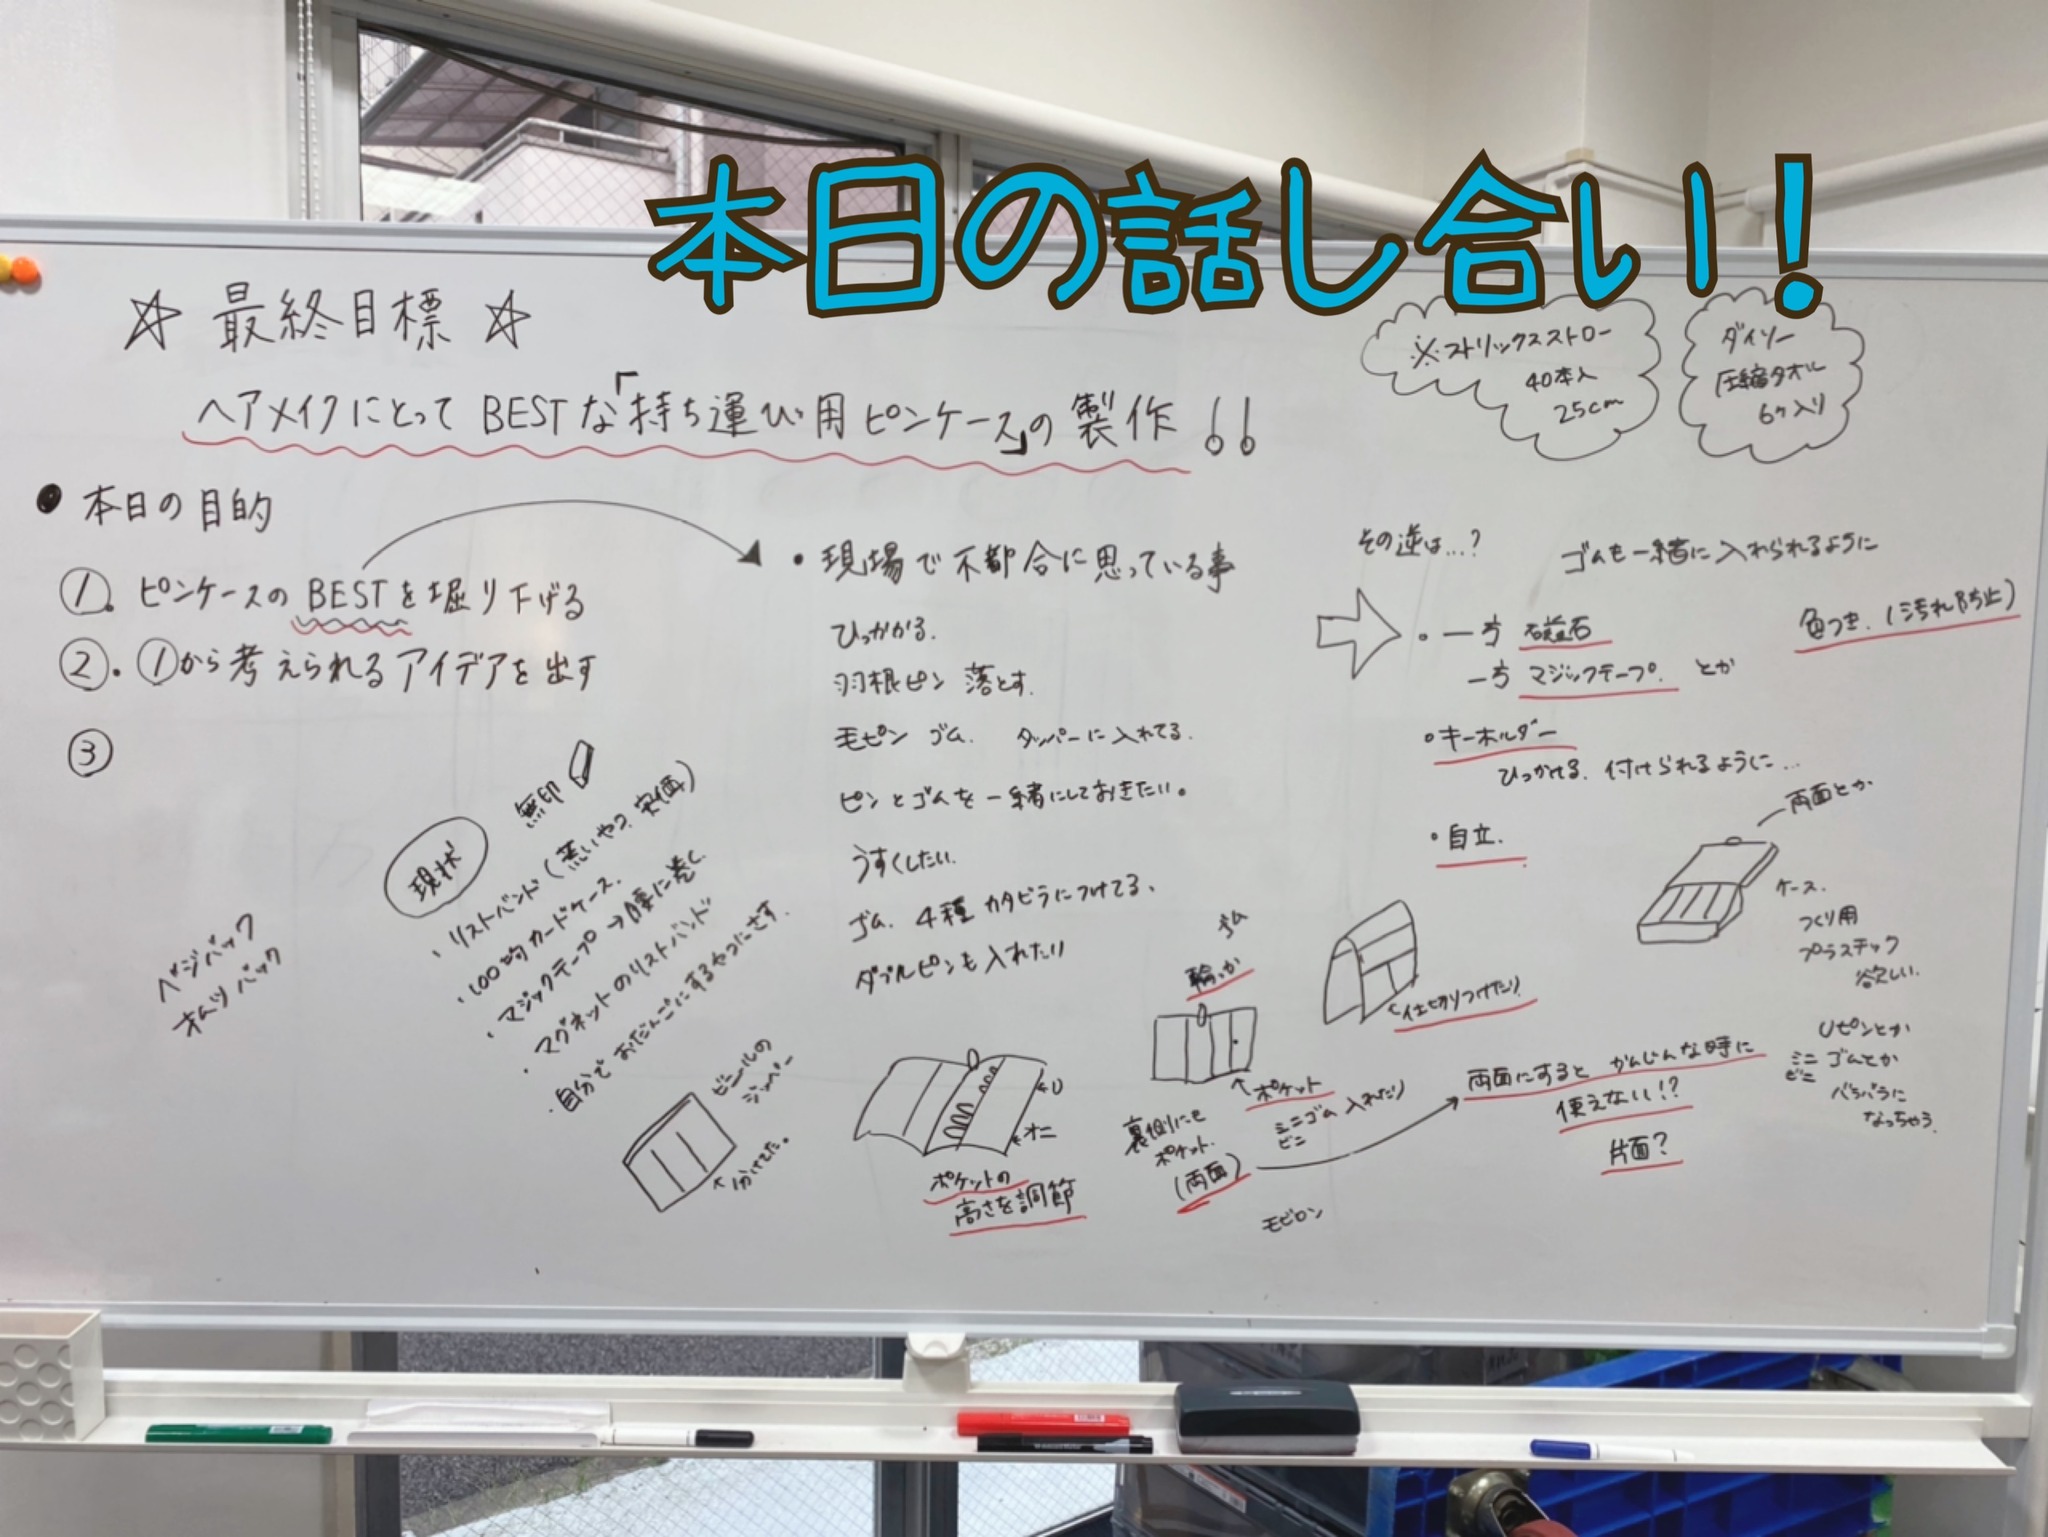 本日の話し合い!
☆ 最終目標 ☆
ヘアメイクにとって BESTな「持ち運び用ピンケース」の 製作 !!
※ストリックスストロー
40本入
25cm
ダイソー
圧縮タオル
6ケ入り
● 本日の目的
①. ピンケースの BESTを堀り下げる
②. ①から考えられるアイデアを出す
③
ベジバック
オムツバック
現状
無印
・リストバンド(黒いやつ. 安価)
・100均カードケース.
・マジックテープ→腰に巻く
・マグネットのリストバンド
・自分でおだんごにするやつにさす.
ビニールの
↖分けてた。
・現場で不都合に思っている事
ひっかかる.
羽根ピン 落とす.
毛ピン ゴム. タッパーに入れてる.
ピンとゴムを一緒にしておきたい。
うすくしたい.
ゴム. 4種 カタビラにつけてる、
ダブルピンも入れたり
←U
←オニ
ポケットの
高さを調節
その逆は…?
ゴムも一緒に入れられるように
・一方 磁石
一方 マジックテープ. とか
色つき. (汚れ防止)
・キーホルダー
ひっかける. 付けられるように…
・自立.
両面とか
ケース.
つくり用
プラスチック
欲しい.
ゴム
輪っか
↖仕切りつけたり
↖ポケット
ミニゴム 入れたり
ピニ
裏側にも
ポケット.
(両面)
両面にすると かんじんな時に
使えない!?
片面?
Uピンとか
ミニ ゴムとか
ビニ
バラバラに
なっちゃう.
モビロン